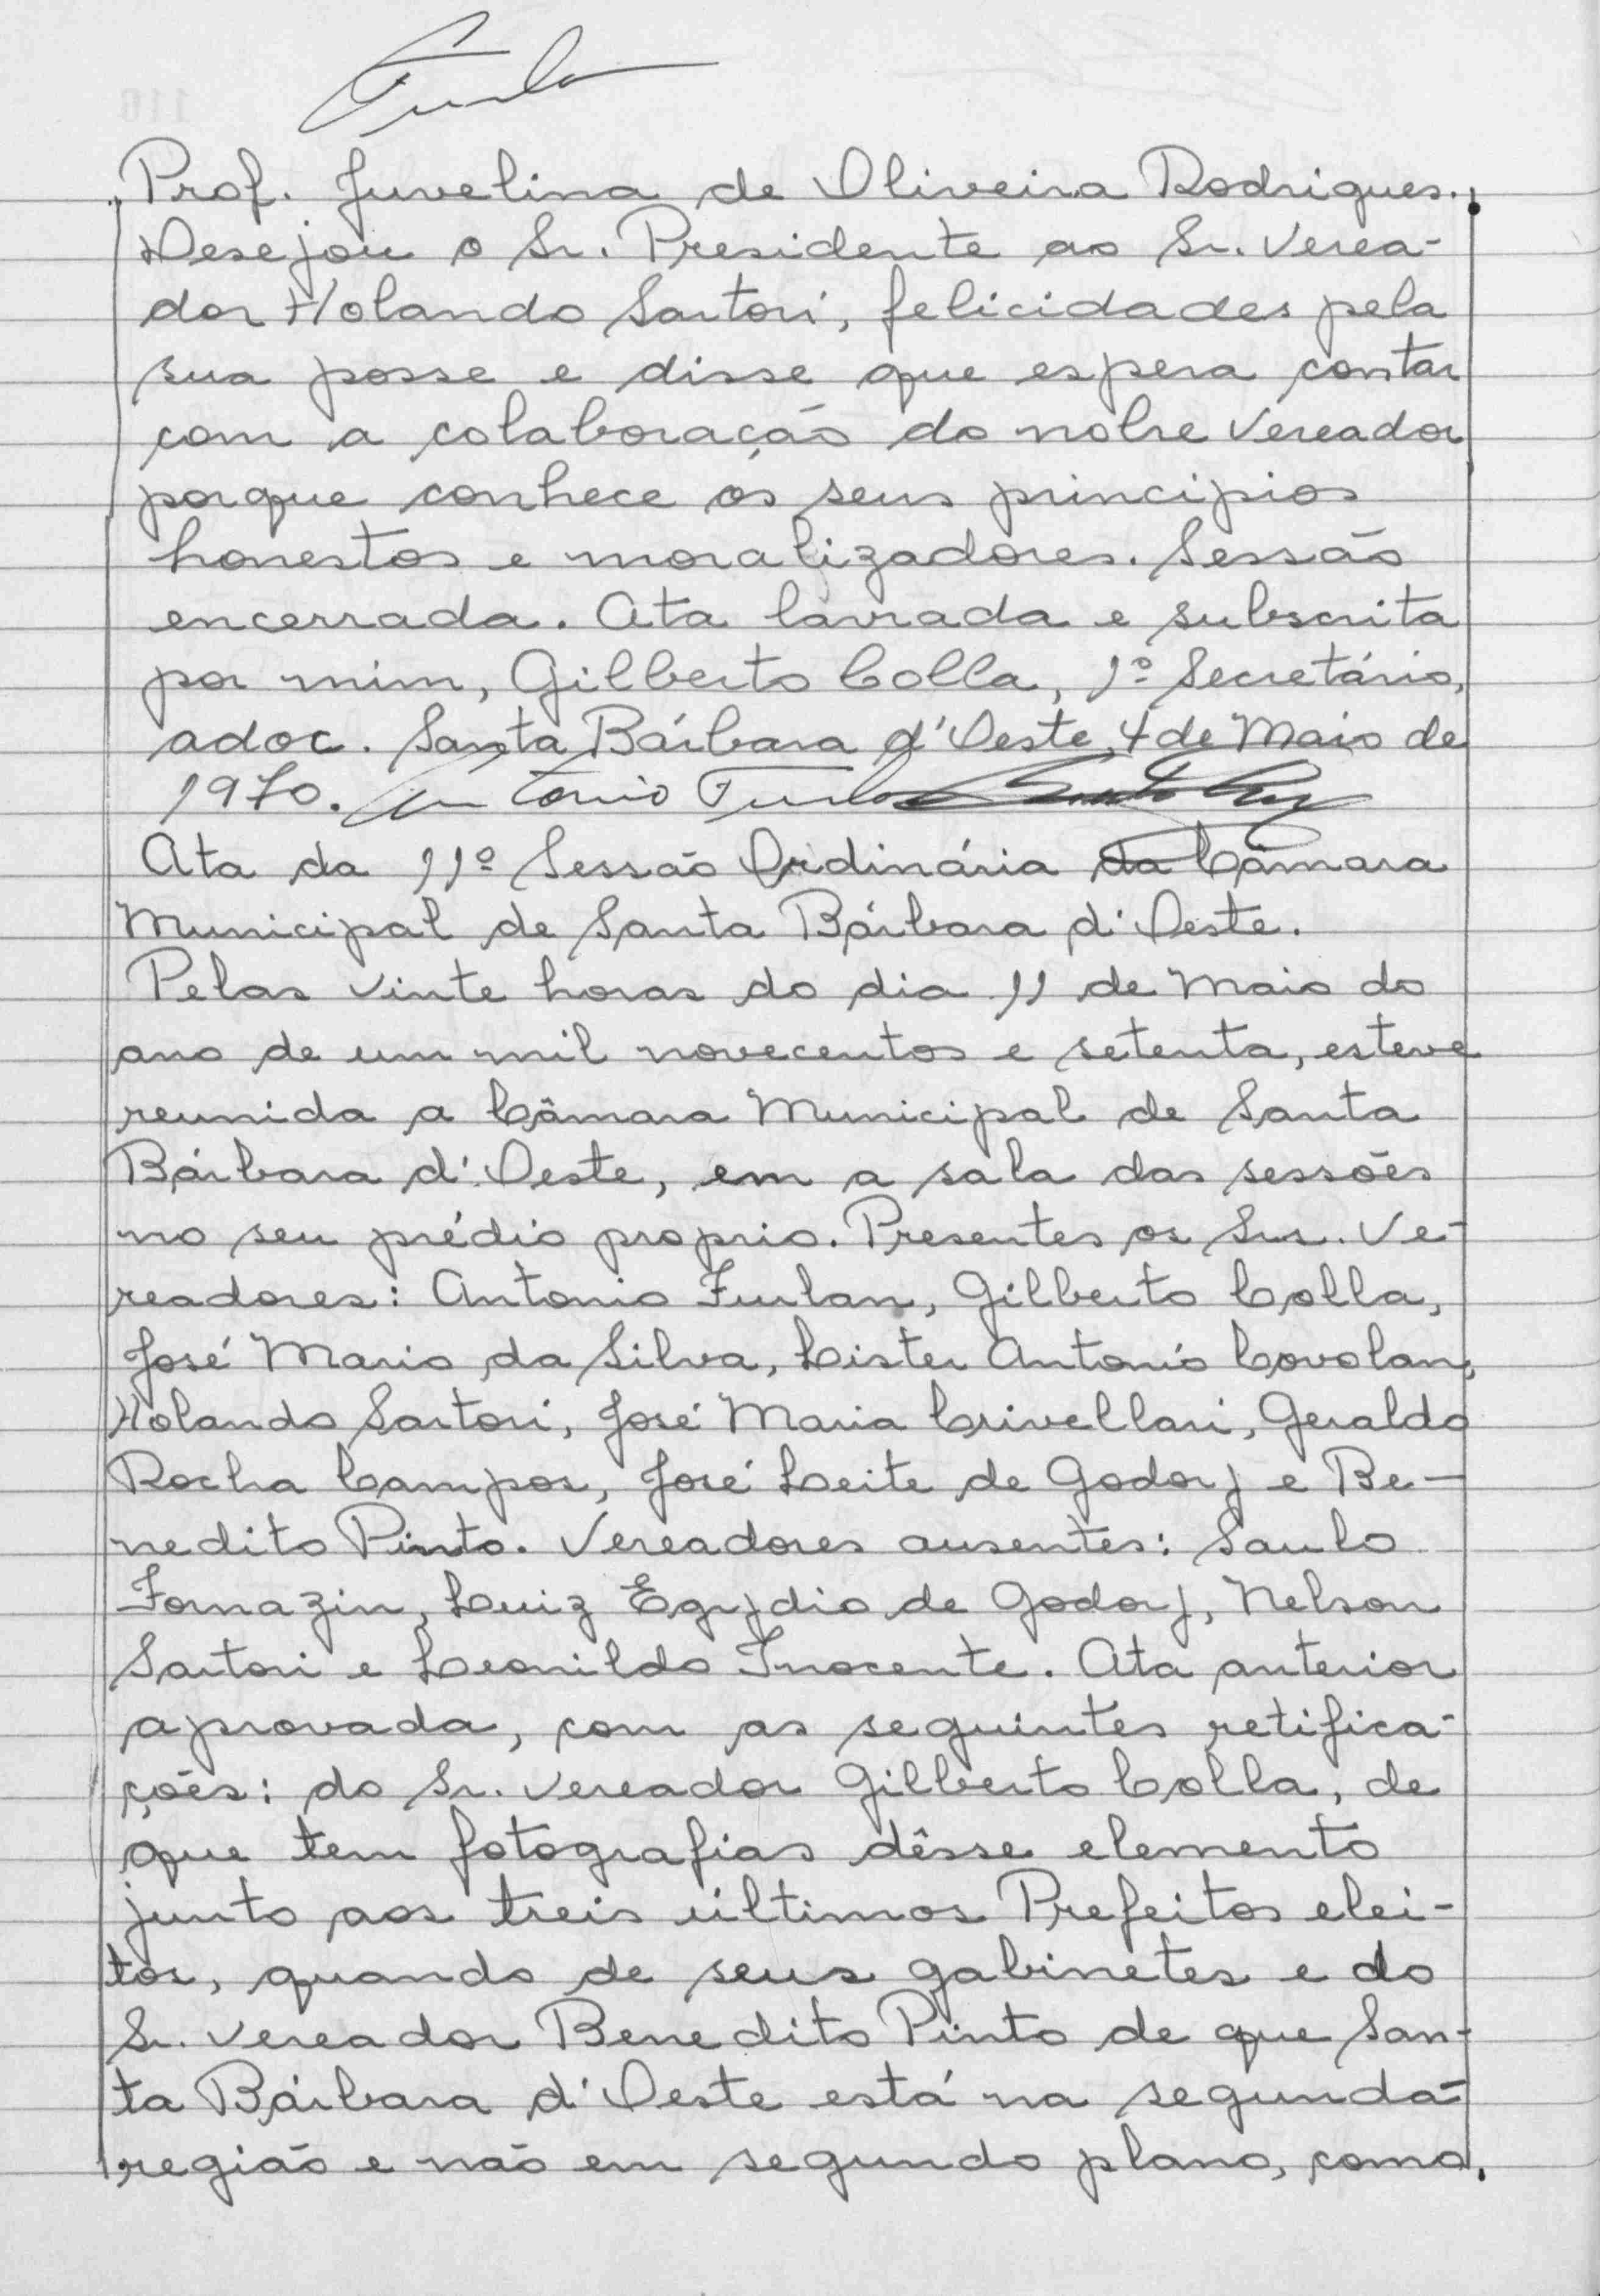 Furlan
Prof. Juvelina de Oliveira Rodrigues.
Desejou o Sr. Presidente ao Sr. Verea-
dor Holando Sartori, felicidades pela
sua posse e disse que espera contar
com a colaboração do nobre Vereador
porque conhece os seus principios
honestos e moralizadores. Sessão
encerrada. Ata lavrada e subscrita
por mim, Gilberto Colla, 1º Secretário,
adoc. Santa Bárbara d'Oeste, 4 de Maio de
1970. Antonio Furlan
Ata da 11º Sessão Ordinária da Câmara
Municipal de Santa Bárbara d'Oeste.
Pelas vinte horas do dia 11 de Maio do
ano de um mil novecentos e setenta, esteve
reunida a Câmara Municipal de Santa
Bárbara d'Oeste, em a sala das sessões
no seu prédio proprio. Presentes os Srs. Ve-
readores: Antonio Furlan, Gilberto Colla,
José Mario da Silva, Lister Antonio Covolan,
Holando Sartori, José Maria Crivellari, Geraldo
Rocha Campos, José Leite de Godoy e Be-
nedito Pinto. Vereadores ausentes: Saulo
Fornazin, Luiz Egydio de Godoy, Nelson
Sartori e Leonildo Inocente. Ata anterior
aprovada, com as seguintes retifica-
ções: do Sr. vereador Gilberto Colla, de
que tem fotografias dêsse elemento
junto aos treis últimos Prefeitos elei-
tos, quando de seus gabinetes e do
Sr. vereador Benedito Pinto de que San-
ta Bárbara d'Oeste está na segunda
região e não em segundo plano, como